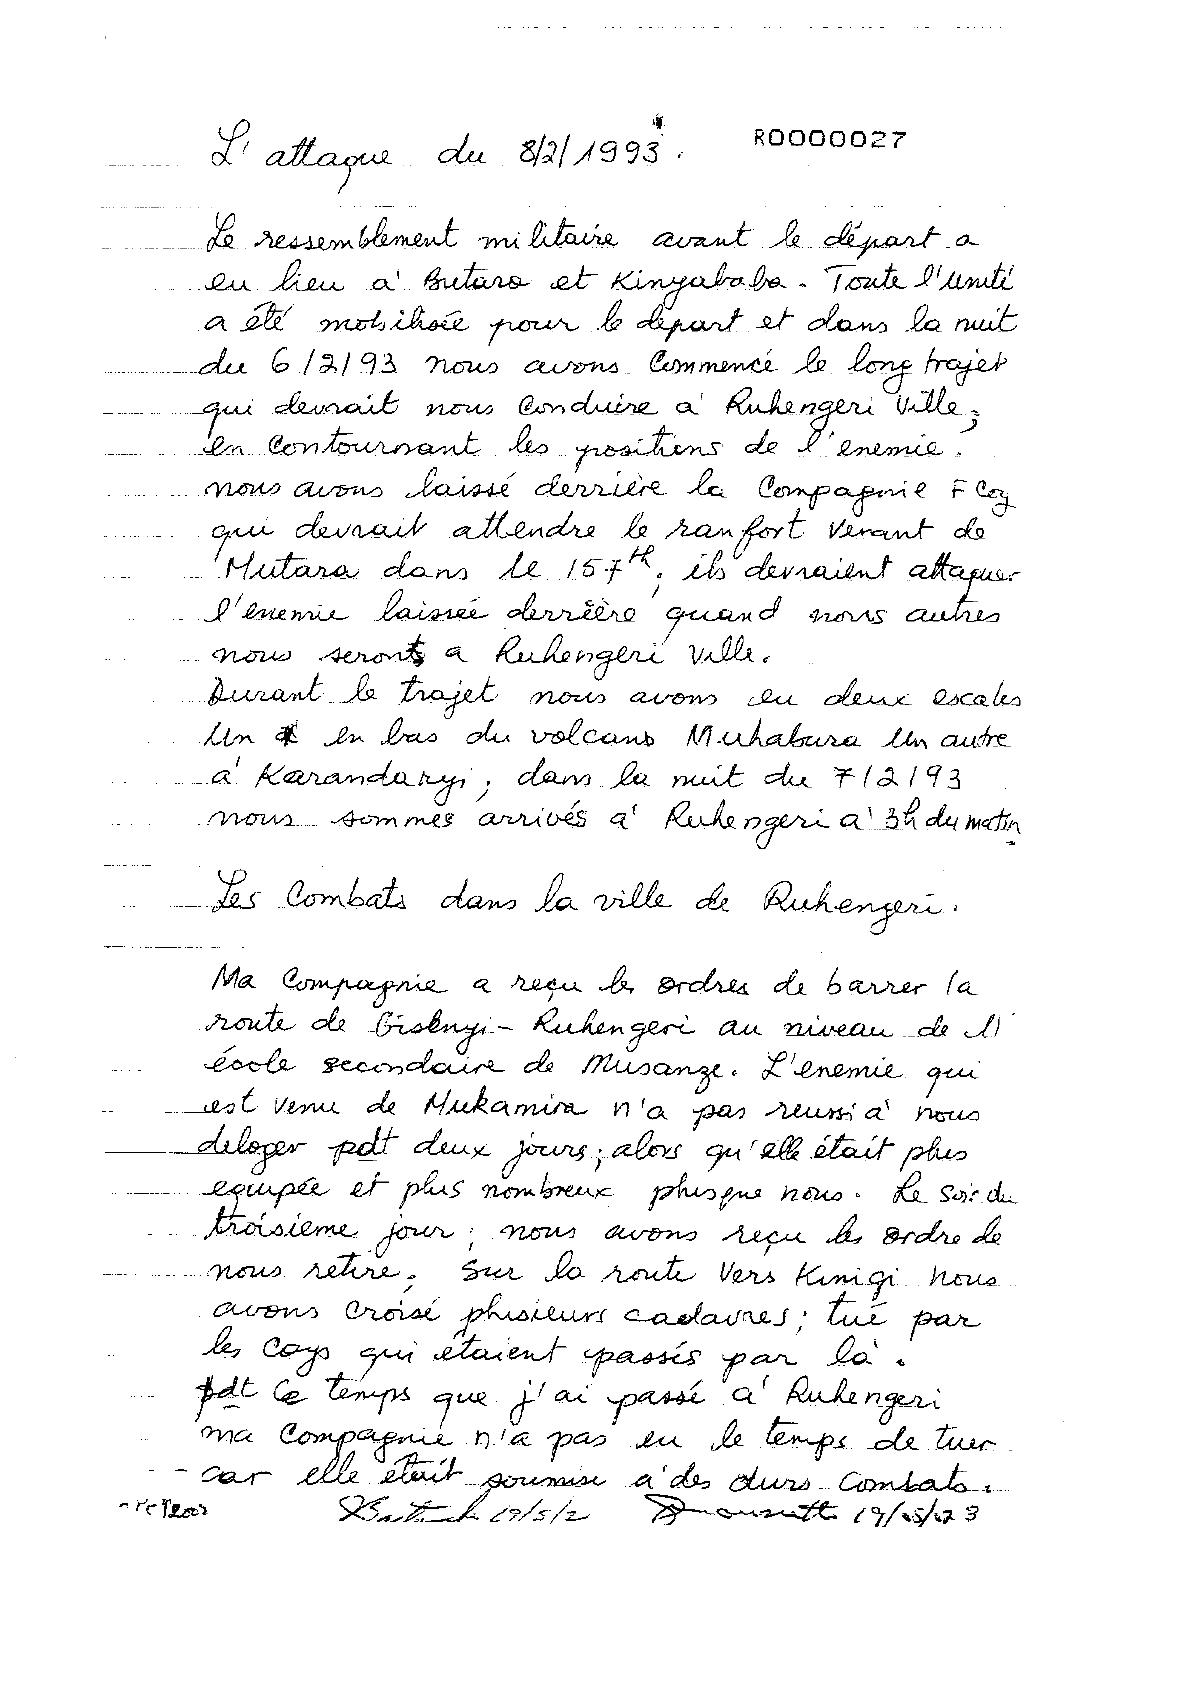 L'attaque du 8/2/1993.
R0000027
Le ressemblement militaire avant le départ a
eu lieu à Butaro et Kinyababa. Toute l'unité
a été mobilisée pour le départ et dans la nuit
du 6/2/93 nous avons commencé le long trajet
qui devrait nous conduire à Ruhengeri Ville;
en contournant les positions de l'enemie.
nous avons laissé derrière la Compagnie F Coy
qui devrait attendre le ranfort venant de
Mutara dans le 157th; ils devraient attaquer
l'enemie laissée derrière quand nous autres
nous seronts a Ruhengeri Ville.
Durant le trajet nous avons eu deux escales
Un en bas du volcano Muhabura Un autre
à Karandaryi; dans la nuit du 7/2/93
nous sommes arrivés à Ruhengeri à 3h du matin
Les Combats dans la ville de Ruhengeri.
Ma Compagnie a reçu les ordres de barrer la
route de Gisenyi - Ruhengeri au niveau de l'
école secondaire de Musanze. L'enemie qui
est venu de Mukamira n'a pas reussi à nous
deloger pdt deux jours; alors qu'elle était plus
equipée et plus nombreux plusque nous. Le soir du
troisieme jour; nous avons reçu les ordre de
nous retire. Sur la route vers Kinigi nous
avons croisé plusieurs cadavres; tué par
les Coys qui étaient passés par là.
pdt ce temps que j'ai passé à Ruhengeri
ma Compagnie n'a pas eu le temps de tuer
car elle était soumise à des durs combats.
19/5/2 19/05/03